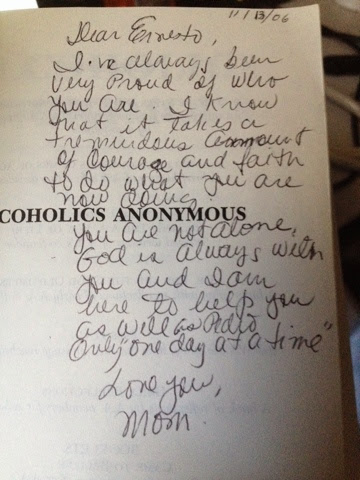 11/13/06
Dear Ernesto,
I've always been
very Proud of who
you Are. I Know
that it takes a
tremendous Amount
of Courage and faith
to do what you are
now doing.
COHOLICS ANONYMOUS
You Are not Alone,
God is always with
you and I am
here to help you
as well as Pedro
Only "one day at a time"
Love you,
Mom.